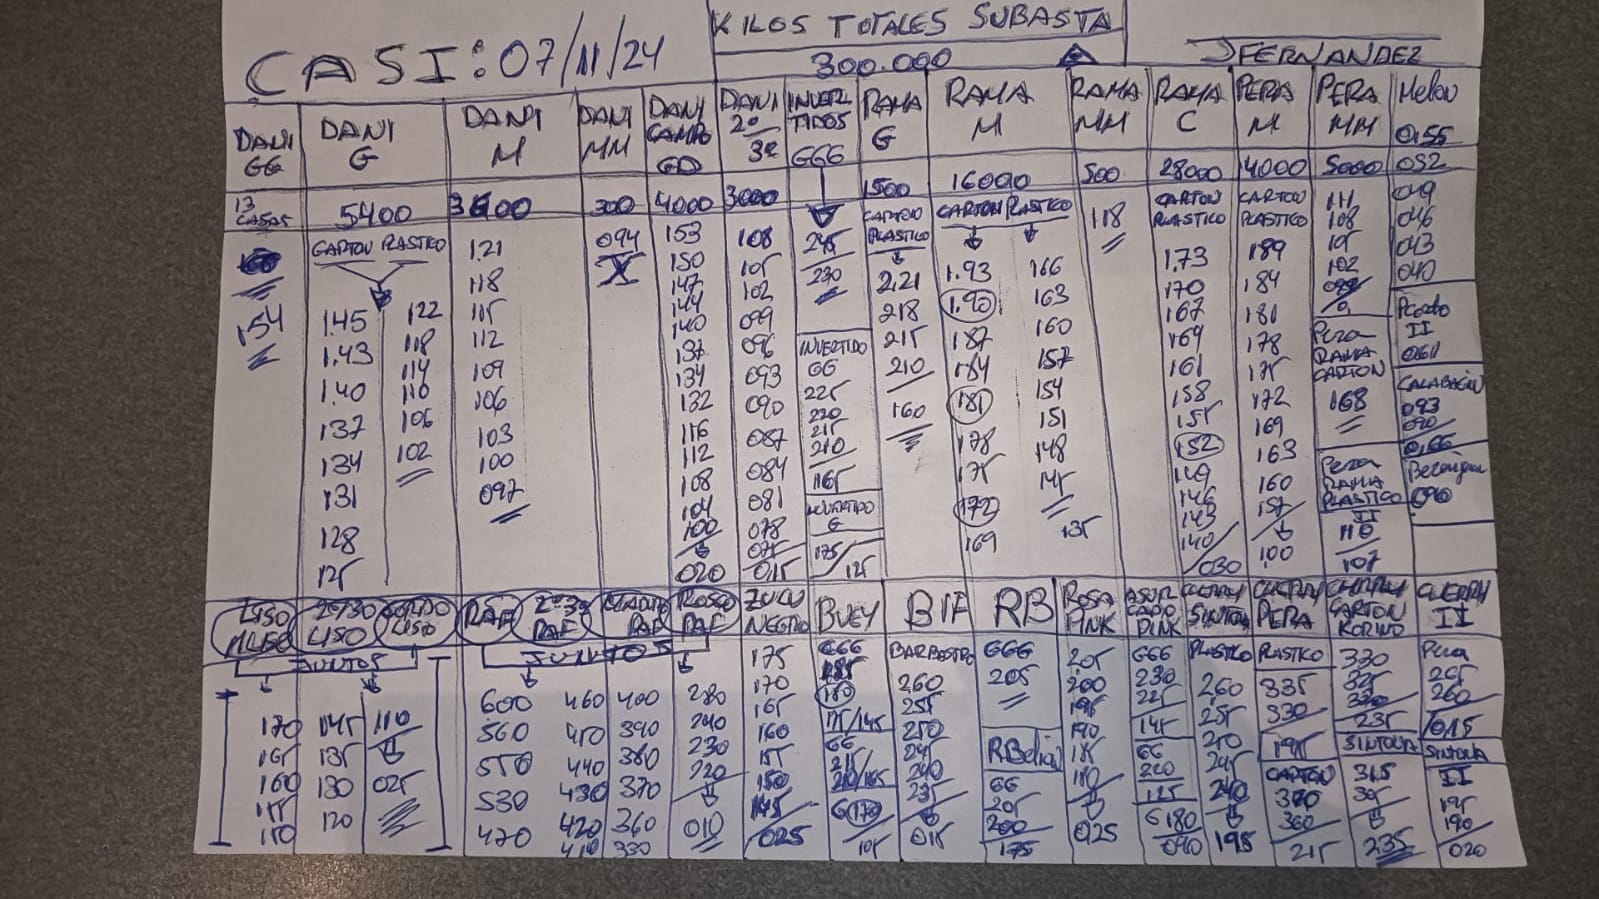 KILOS TOTALES SUBASTA
CASI: 07/11/24
300.000
JFERNANDEZ
DANI GG
DANI G
DANI M
DANI MM
DANI CAMPO GD
DANI 2º 3ª
INVERTIDOS GGG
RAMA G
RAMA M
RAMA MM
RAMA C
PERA M
PERA MM
Melon 0.55
13 CASAS
5400
300
4000
3000
1500
16000
500
28000
4000
5000
052
154
CARTON PLASTICO
1.45 122
1.43 118
1.40 114
137 110
134 106
131 102
128
125
1.21
118
115
112
109
106
103
100
097
094
153
150
147
144
140
137
134
132
116
112
108
104
100
020
108
105
102
099
096
093
090
087
084
081
078
075
015
245
230
INVERTIDO
GG
225
220
215
210
165
INVERTIDO
G
175/125
CARTON
PLASTICO
2.21
218
215
210
160
CARTON PLASTICO
1.93 166
1.90 163
187 160
184 157
181 154
178 151
175 148
172 145
169 135
118
CARTON
PLASTICO
1.73
170
167
164
161
158
155
152
149
146
143
140
030
CARTON
PLASTICO
189
184
181
178
175
172
169
163
160
157
100
111
108
105
102
Pera
RAMA
CARTON
168
Pera
RAMA
PLASTICO
II
110
107
049
046
043
040
II
CALABACIN
093
090
0,66
Berenjena
090
LISO
2º/3º LISO
LISO
RAF
2º3º RAF
RAF
ROSCO RAF
ZULU NEGRO
BUEY
BIF
RB
ROSA PINK
PINK
CHERRY SINTONIA
CHERRY PERA
CHERRY CARTON KORINO
CHERRY II
JUNTOS
170 145 110
165 135
160 130 025
155 120
150
JUNTOS
600 460 400 280
560 450 390 240
550 440 380 230
530 430 370 220
470 420 360 010
410 330
175
170
165
160
155
150
145
025
GGG
185
180
175/145
GG
215
210/165
G 170
105
BARBASTRO
260
255
250
245
240
235
015
GGG
205
GG
205
200
175
205
200
195
190
185
180
025
GGG
230
225
145
GG
220
125
G 180
090
PLASTICO
260
255
250
245
240
195
PLASTICO
335
330
195
CARTON
370
360
215
330
325
320
235
SINTONIA
315
305
235
Pera
265
260
/015
SINTONIA
II
195
190
020